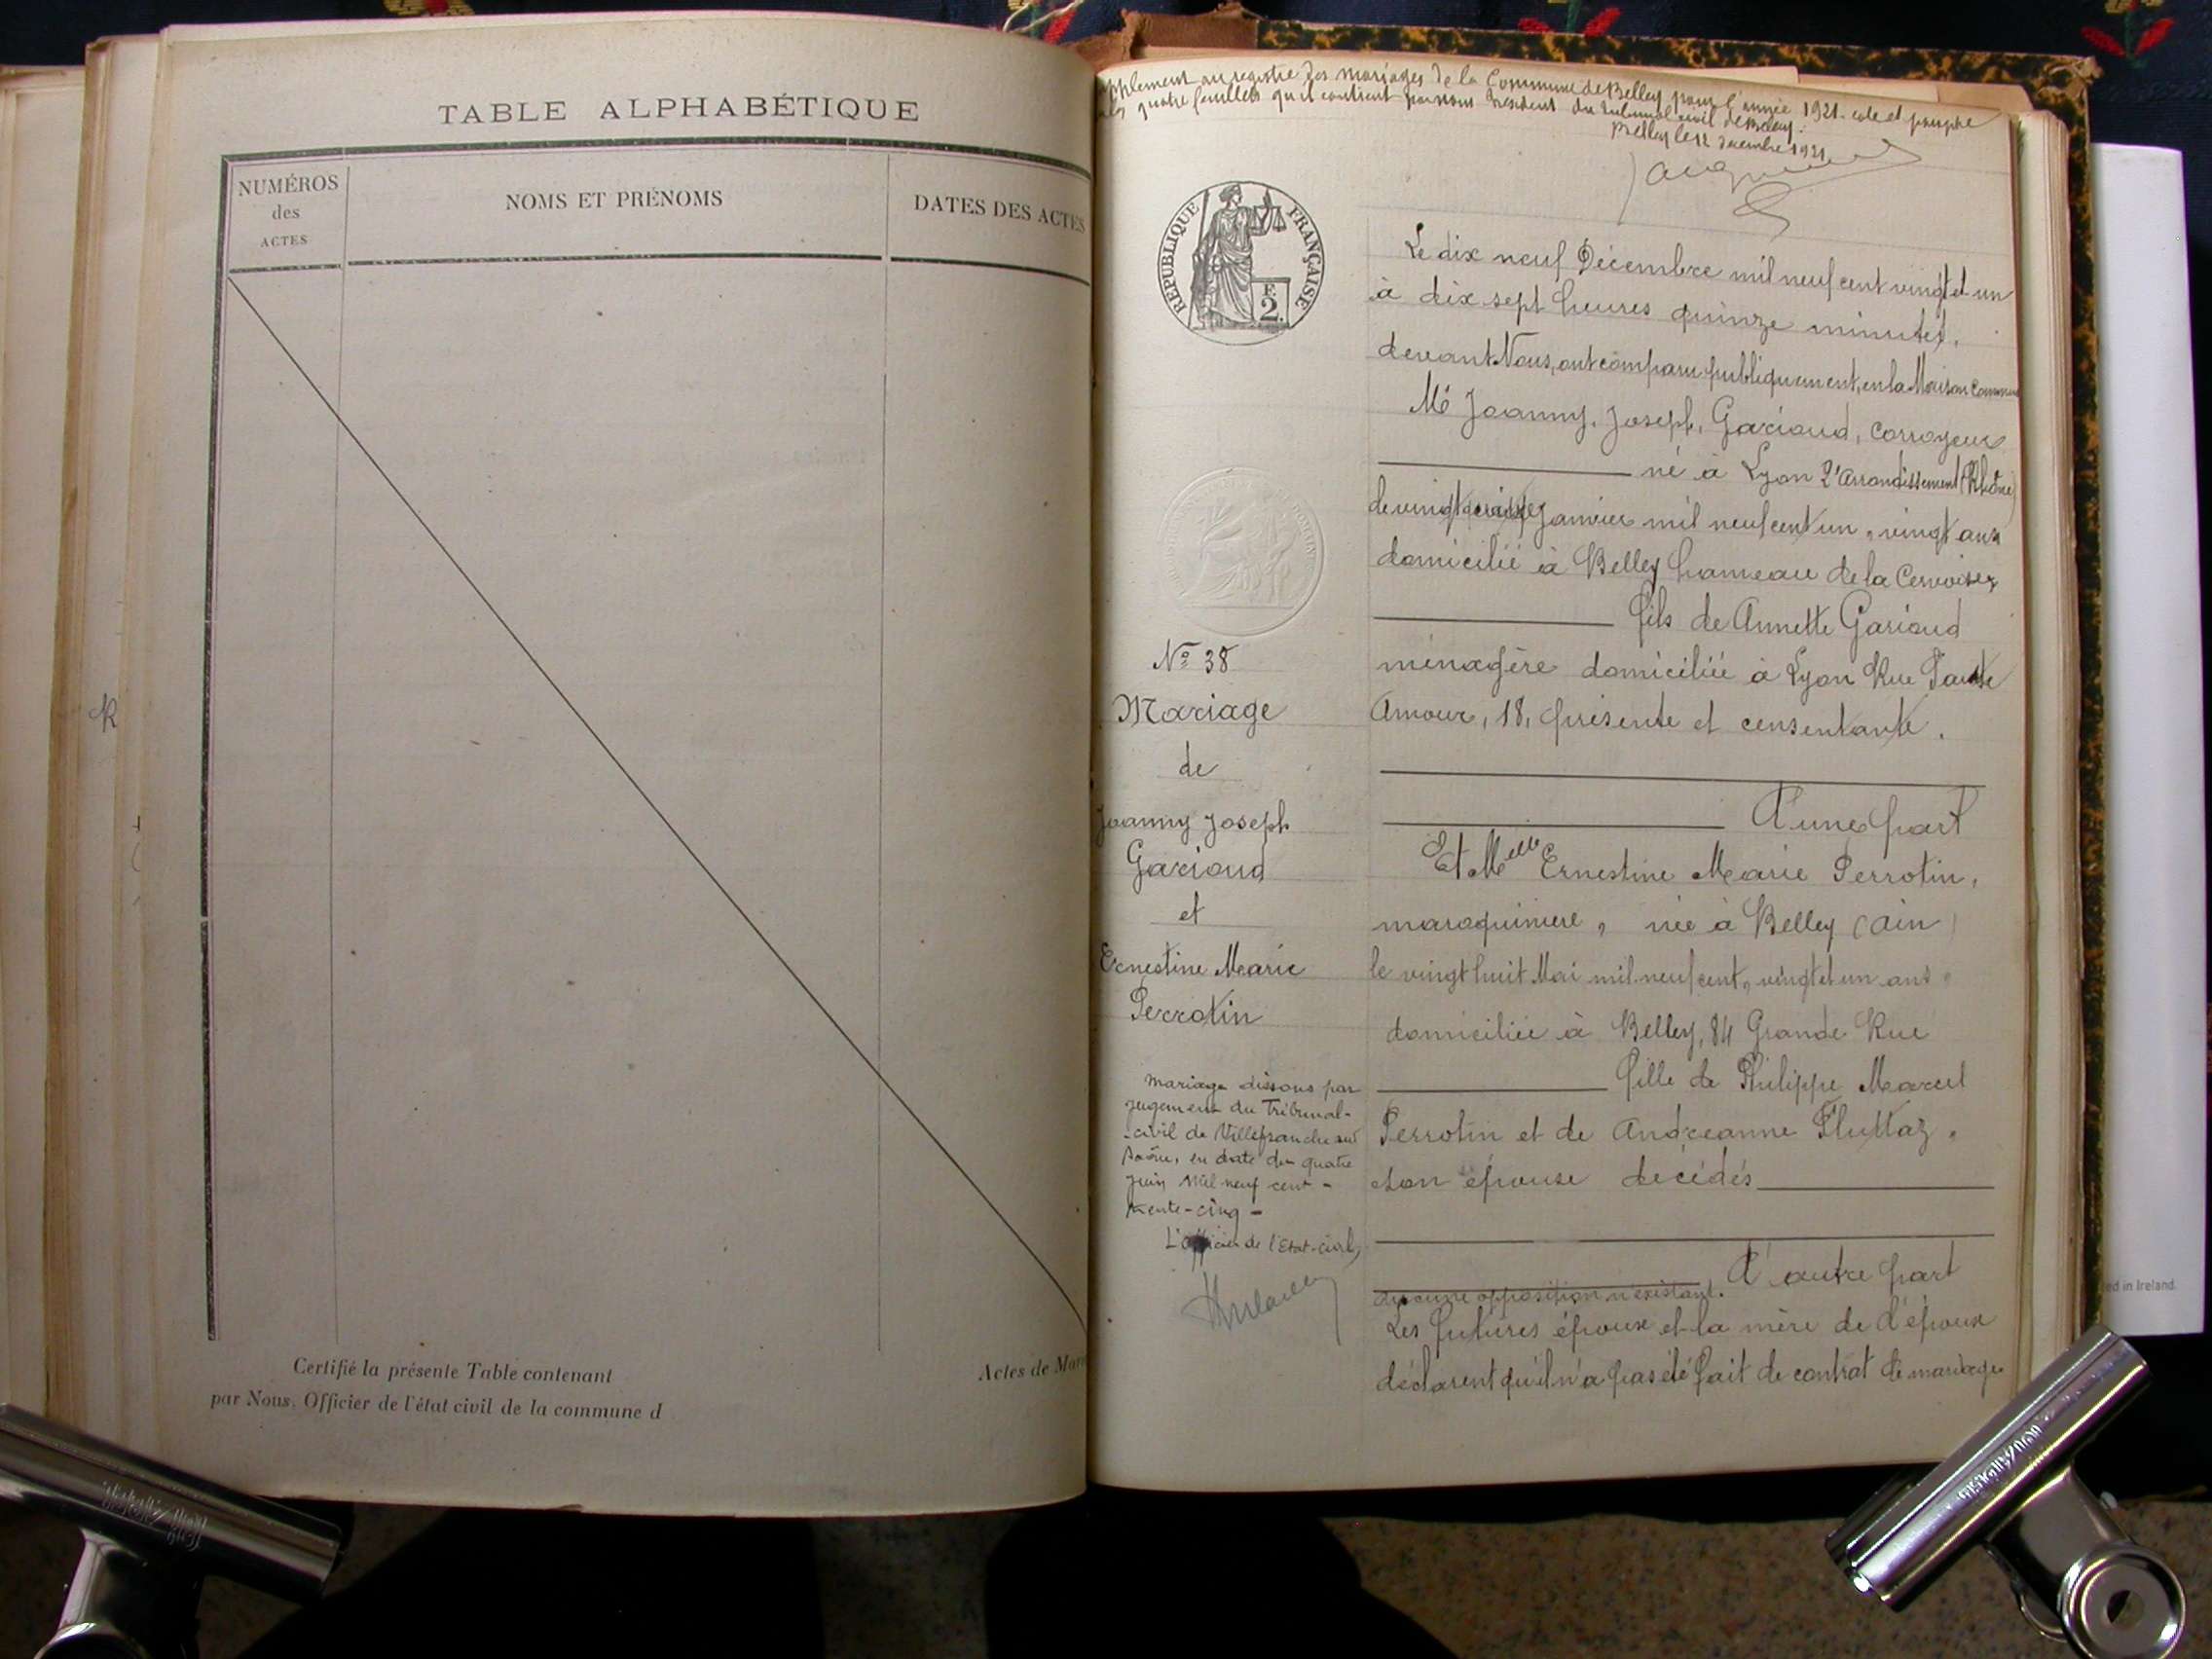 TABLE ALPHABÉTIQUE
NUMÉROS
des
ACTES
NOMS ET PRÉNOMS
DATES DES ACTES
Certifié la présente Table contenant
Actes de Mar
par Nous, Officier de l'état civil de la commune d
R
pplement au registre des mariages de la Commune de Belley pour l'année 1921. cote et paraphe
quatre feuillets qu'il contient par nous Président du Tribunal civil de Belley.
Belley le 12 décembre 1921
RÉPUBLIQUE FRANÇAISE
F.
2.
No 38
Mariage
de
Joanny Joseph
Garioud
et
Ernestine Marie
Perrotin
mariage dissous par
jugement du Tribunal-
-civil de Villefranche sur
Saône, en date du quatre
juin Mil neuf cent -
trente-cinq -
L'officier de l'Etat-civil,
Le dix neuf Décembre mil neuf cent vingt et un
à dix sept heures quinze minutes,
devant Nous, ont comparu publiquement, en la Maison Commune
Mr Joanny, Joseph, Garioud, corroyeur
né à Lyon 2e Arrondissement (Rhône)
le vingt Janvier mil neuf cent un, vingt ans
domicilié à Belley hameau de la
fils de Annette Garioud
ménagère domiciliée à Lyon Rue
Amour, 18, présente et consentante.
D'une part
Et Melle Ernestine Marie Perrotin,
maroquiniere, née à Belley (Ain)
le vingt huit Mai mil neuf cent, vingt et un ans,
domiciliée à Belley, 84 Grande Rue
fille de Philippe Marcel
Perrotin et de Andréanne Fluttaz,
son épouse décédés
D'autre part
Aucune opposition n'existant.
Les futures époux et la mère de l'époux
déclarent qu'il n'a pas été fait de contrat de mariage
ed in Ireland.